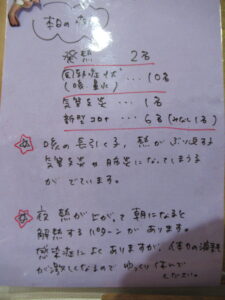 本日の
発熱 2名
風邪症状 … 10名
(咳 鼻水)
気管支炎 … 1名
新型コロナ … 6名(みなし1名)
咳の長引く子、熱がぶり返す子
気管支炎や肺炎になってしまう子
がでています。
夜 熱が上がって朝になると
解熱するパターンがあります。
感染症によくありますが、体力の消耗
が激しくなるのでゆっくり休んで
ください。